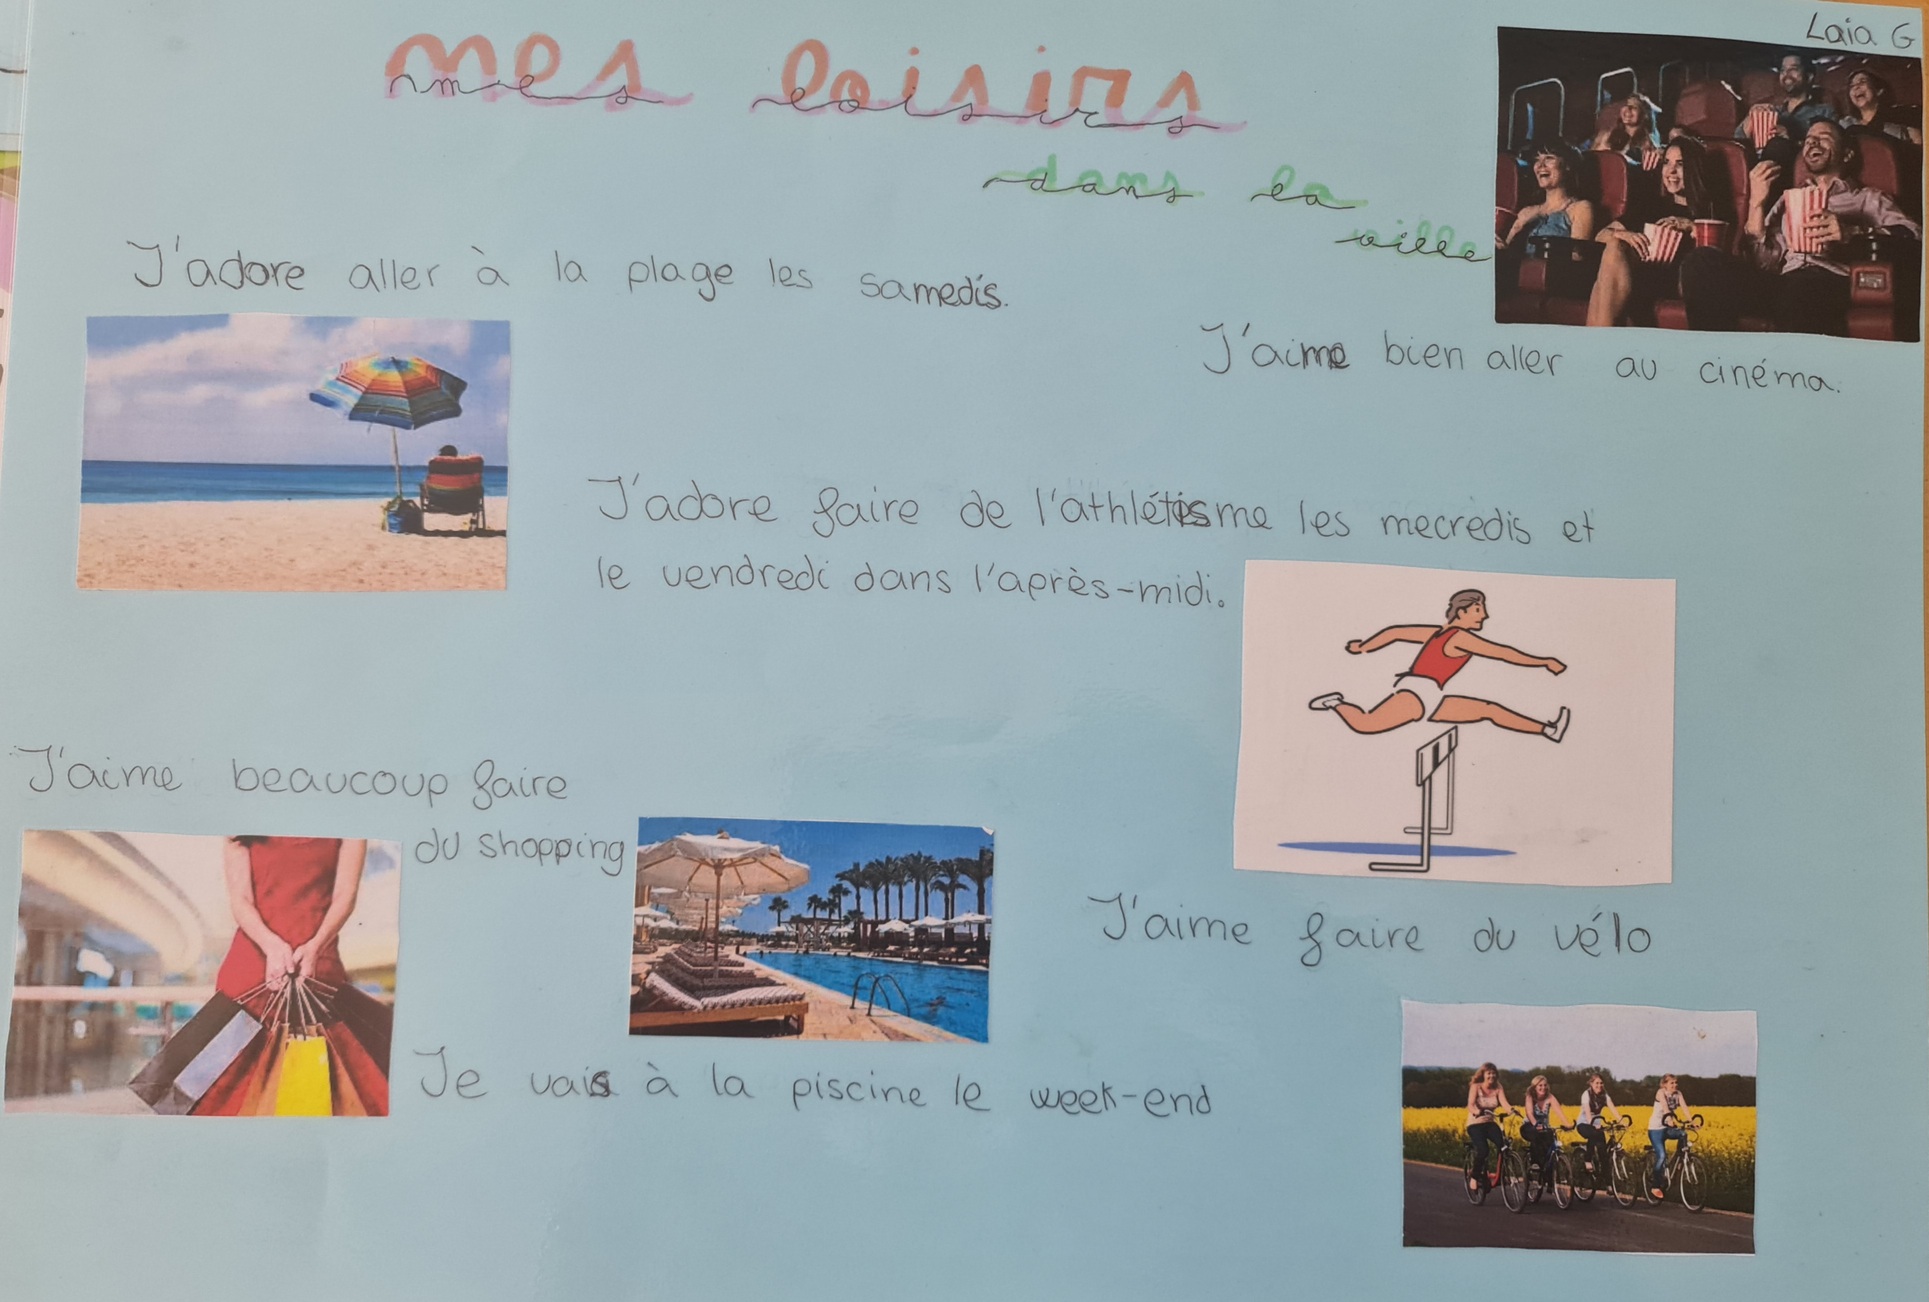 Laia G
mes loisirs
dans la
ville
J'adore aller à la plage les samedis.
J'aime bien aller au cinéma.
J'adore faire de l'athlétisme les mecredis et
le vendredi dans l'après-midi.
J'aime beaucoup faire
du shopping
J'aime faire du vélo
Je vais à la piscine le week-end